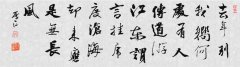 去年別
我向何
處有人
傳道游
江東謂
言挂席
度滄海
却来應
是無長
風